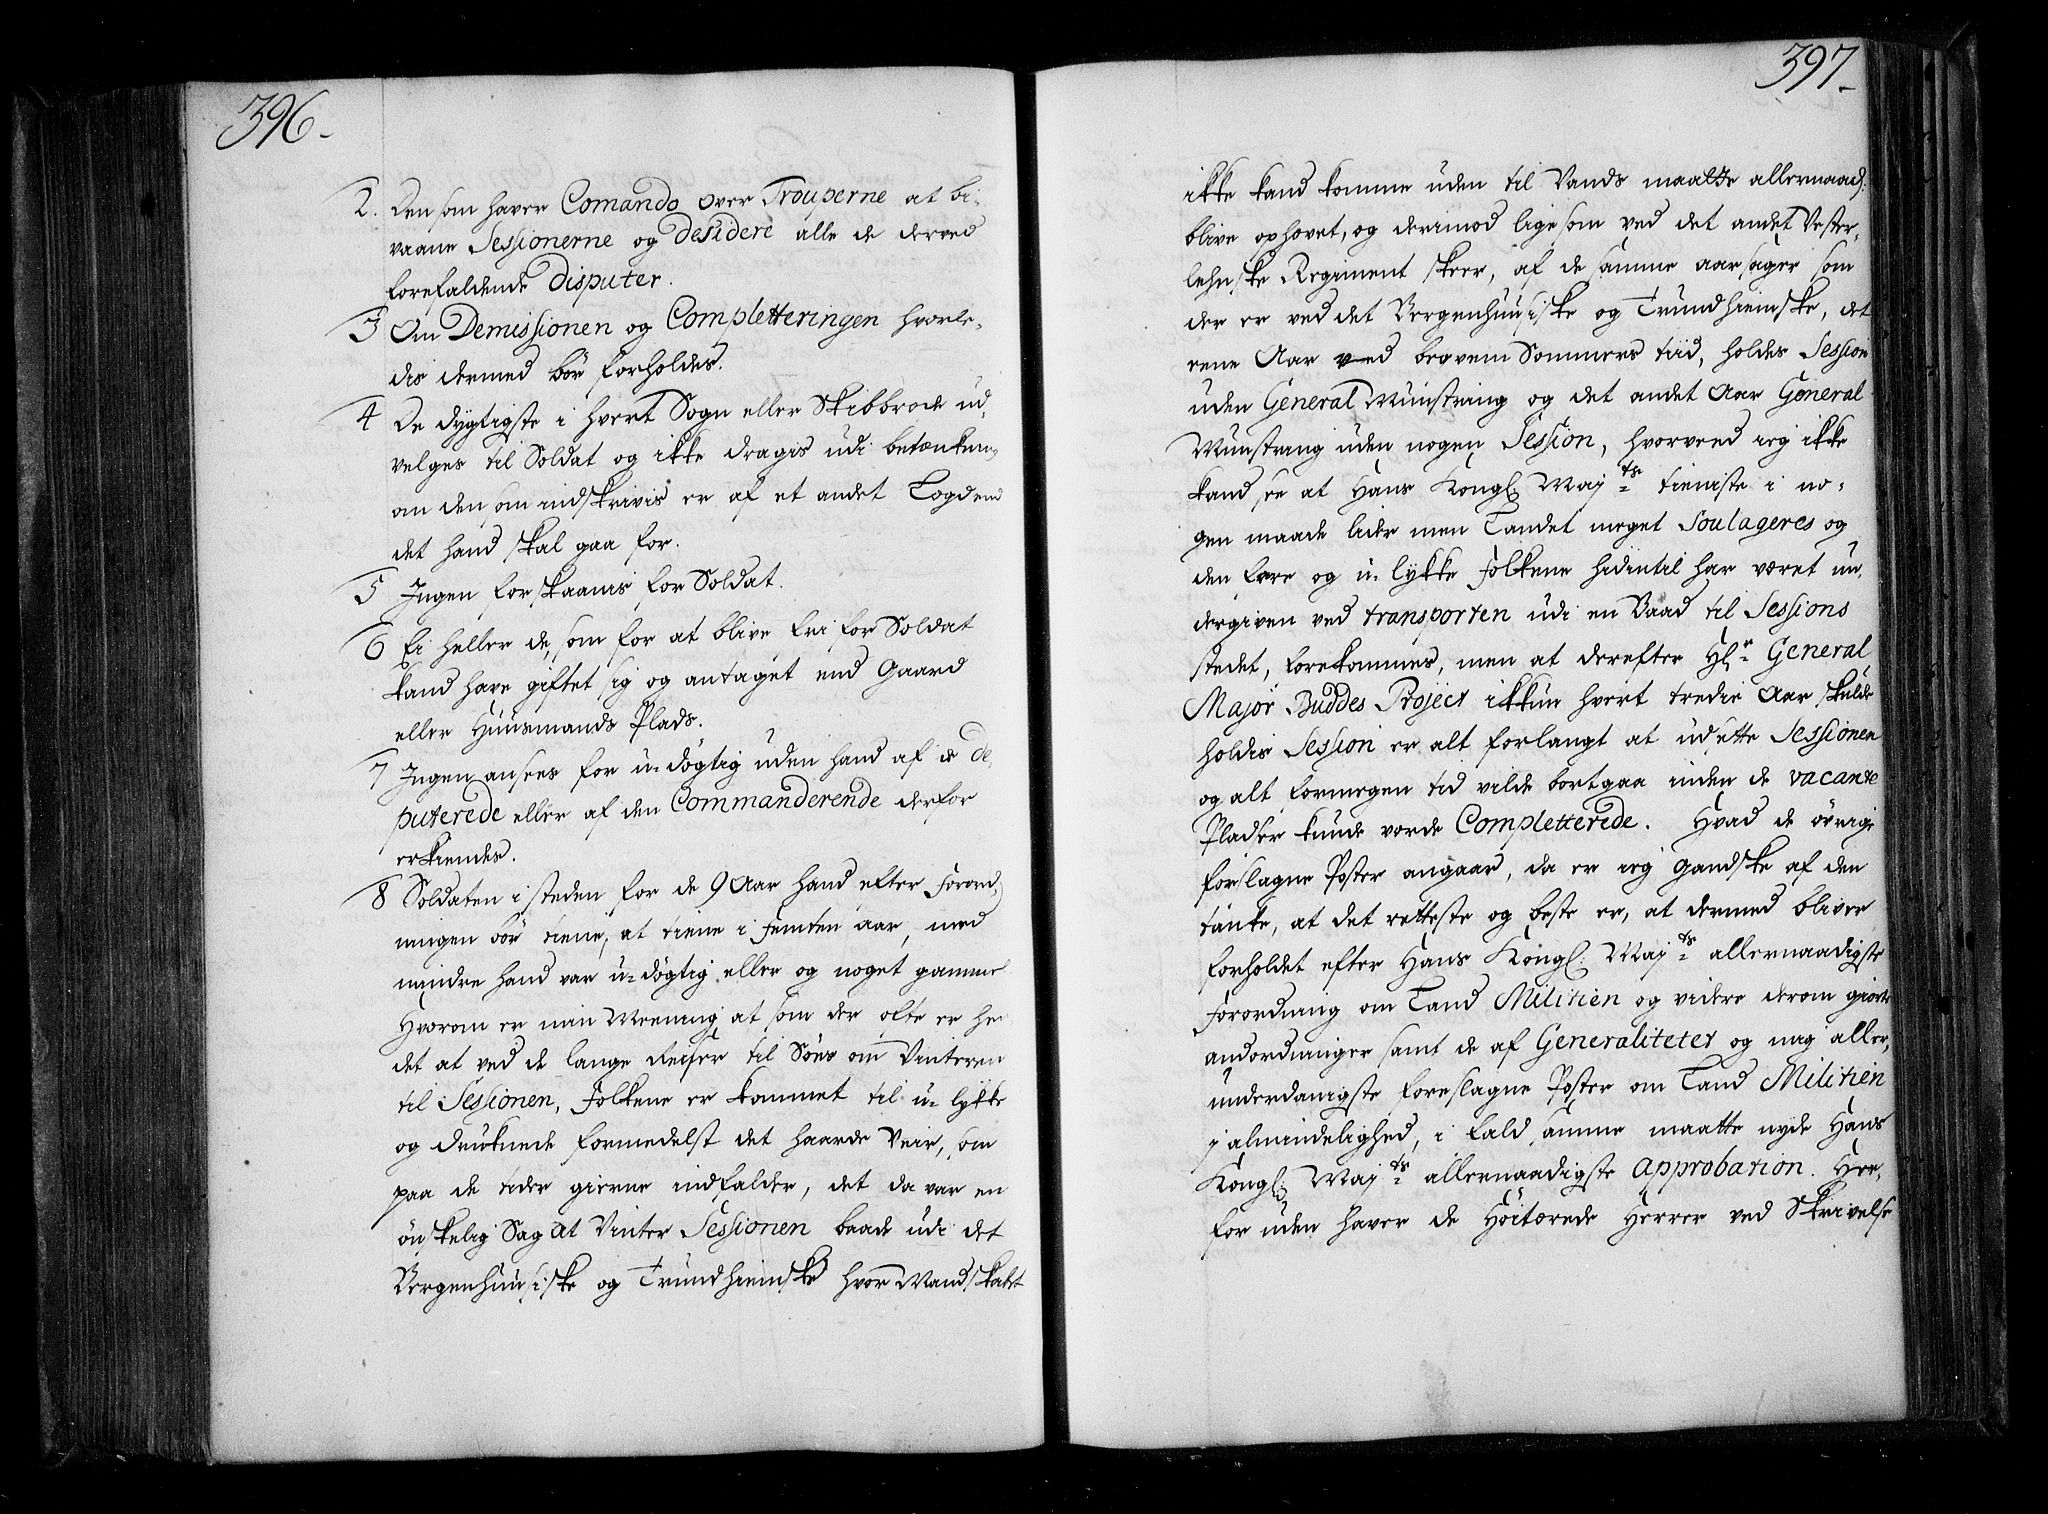 396.
2. Den som haver Comando over Trouperne at bi-
vaane Sessionerne og desidere alle de derved
forefaldende Disputer.
3 Om Demissionen og Completteringen hvorle-
dis dermed bør forholdes.
4 De dygtigste i hvert Sogn eller Skibbrode ud-
velges til Soldat og ikke dragis udi betænken
om den som indskrivis er af et andet Lægd end
det hand skal gaa for.
5 Ingen forskaanis for Soldat.
6 Ei heller de, som for at blive fri for Soldat
kand have giftet sig og antaget end Gaard
eller Huusmands Plads.
7 Ingen ansees for u-døgtig uden hand af de De-
puterede eller af den Commanderende derfor
erkiendes.
8 Soldaten i steden for de 9 Aar hand efter Forord-
ningen bør tiene, at tiene i femten aar, med
mindre hand var u-døgtig eller og noget gammel
Hvorom er min Meening at som der ofte er he
det at ved de lange Reiser til Søes om Vinteren
til Sessionen, Folkene er kommet til u-lykke
og druknede formedelst det haarde Veir, som
paa de tider gierne indfalder, det da var en
ønskelig Sag at Vinter Sessionen baade udi det
Bergenhuusiske og Trundhiemske hvor Mandskabet
397.
ikke kand komme uden til Vands maatte allernaad.
blive ophovet, og derimod ligesom ved det andet Vester-
lehnske Regiment skeer, af de samme aarsager som
der er ved det Bergenhuusiske og Trundhiemske, det
eene Aar ved beqvem Sommers tiid, holdes Session
uden General Munstring og det andet Aar General
Munstring uden nogen Session, hvorved ieg ikke
kand see at Hans Kongl. May.ts tieniste i no-
gen maade lider men Landet meget Soulageres og
den fare og u-lykke Folkene hidintil har været un-
dergiven ved transporten udi en Baad til Sessions
stedet, forekommes, men at derefter Hl.r General
Major Buddes Project ikkun hvert tredie Aar skulde
holdis Session er alt forlangt at udsette Sessionen
og alt formegen tid vilde bortgaa inden de vacante
Pladser kunde vorde Completterede. Hvad de øvrige
forslagne Poster angaar, da er ieg gandske af den
tanke, at det retteste og beste er, at dermed bliver
forholdet efter Hans Kongl. May.ts allernaadigste
Forordning om Land Militien og videre derom giorte
andordninger samt de af Generalitetet og mig aller-
underdanigste foreslagne Poster om Land Militien
j almindelighed, i fald samme maatte nyde Hans
Kongl. May.ts allernaadigste approbation. Her-
for uden haver de Høitærede Herrer ved Skrivelse